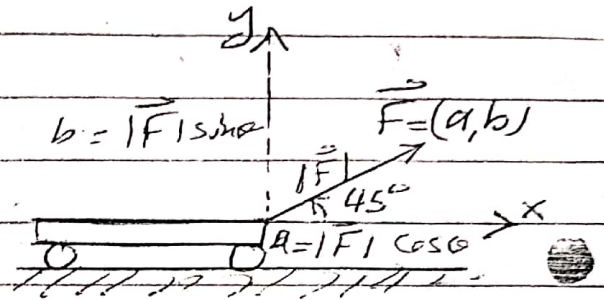 y
b = |F⃗| sinθ
F⃗=(a,b)
|F⃗|
45°
x
a=|F⃗| cosθ